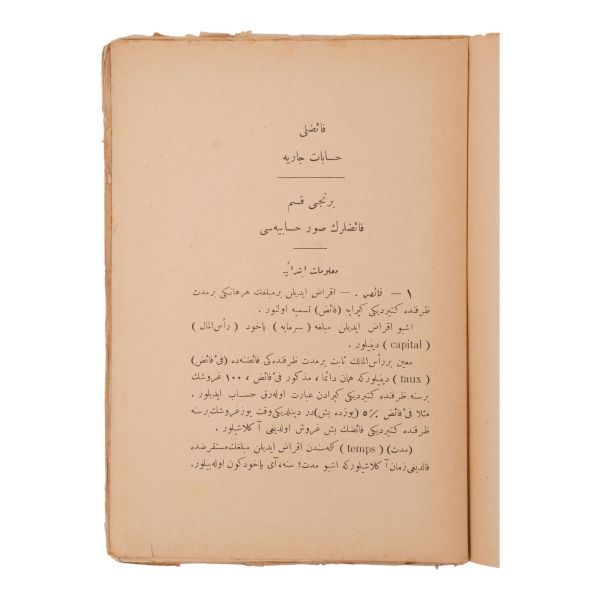 فائضلی
حسابات جاریه
برنجی قسم
فائضلرك صور حسابیه‌سی
معلومات ابتدائیه
۱ — فائض . — اقراض ایدیلن برمبلغك هرهانکی برمدت
ظرفنده کتیردیکی کیرایه (فائض) تسمیه اولنور .
اشبو اقراض ایدیلن مبلغه (سرمایه) یاخود (رأس‌المال)
(capital) دینیلور .
معین بررأس‌المالك ثابت برمدت ظرفنده‌کی فائضنه‌ده (فئ فائض)
(taux) دینیلورکه همان دائما، مذکور فئ فائض، ۱۰۰ غروشك
برسنه ظرفنده کتیردیکی کیرادن عبارت اوله‌رق حساب ایدیلور .
مثلا فئ فائض ۵٪ (یوزده بش) در دینلدیکی وقت یوزغروشك برسنه
ظرفنده کتیردیکی فائضك بش غروش اولدیغی آ کلاشیلور .
(مدت) (temps) کله‌سندن اقراض ایدیلن مبلغك مستقرضده
قالدیغی زمان آ کلاشیلورکه اشبو مدت؛ سنه، آی یاخود کون اوله‌بیلور.